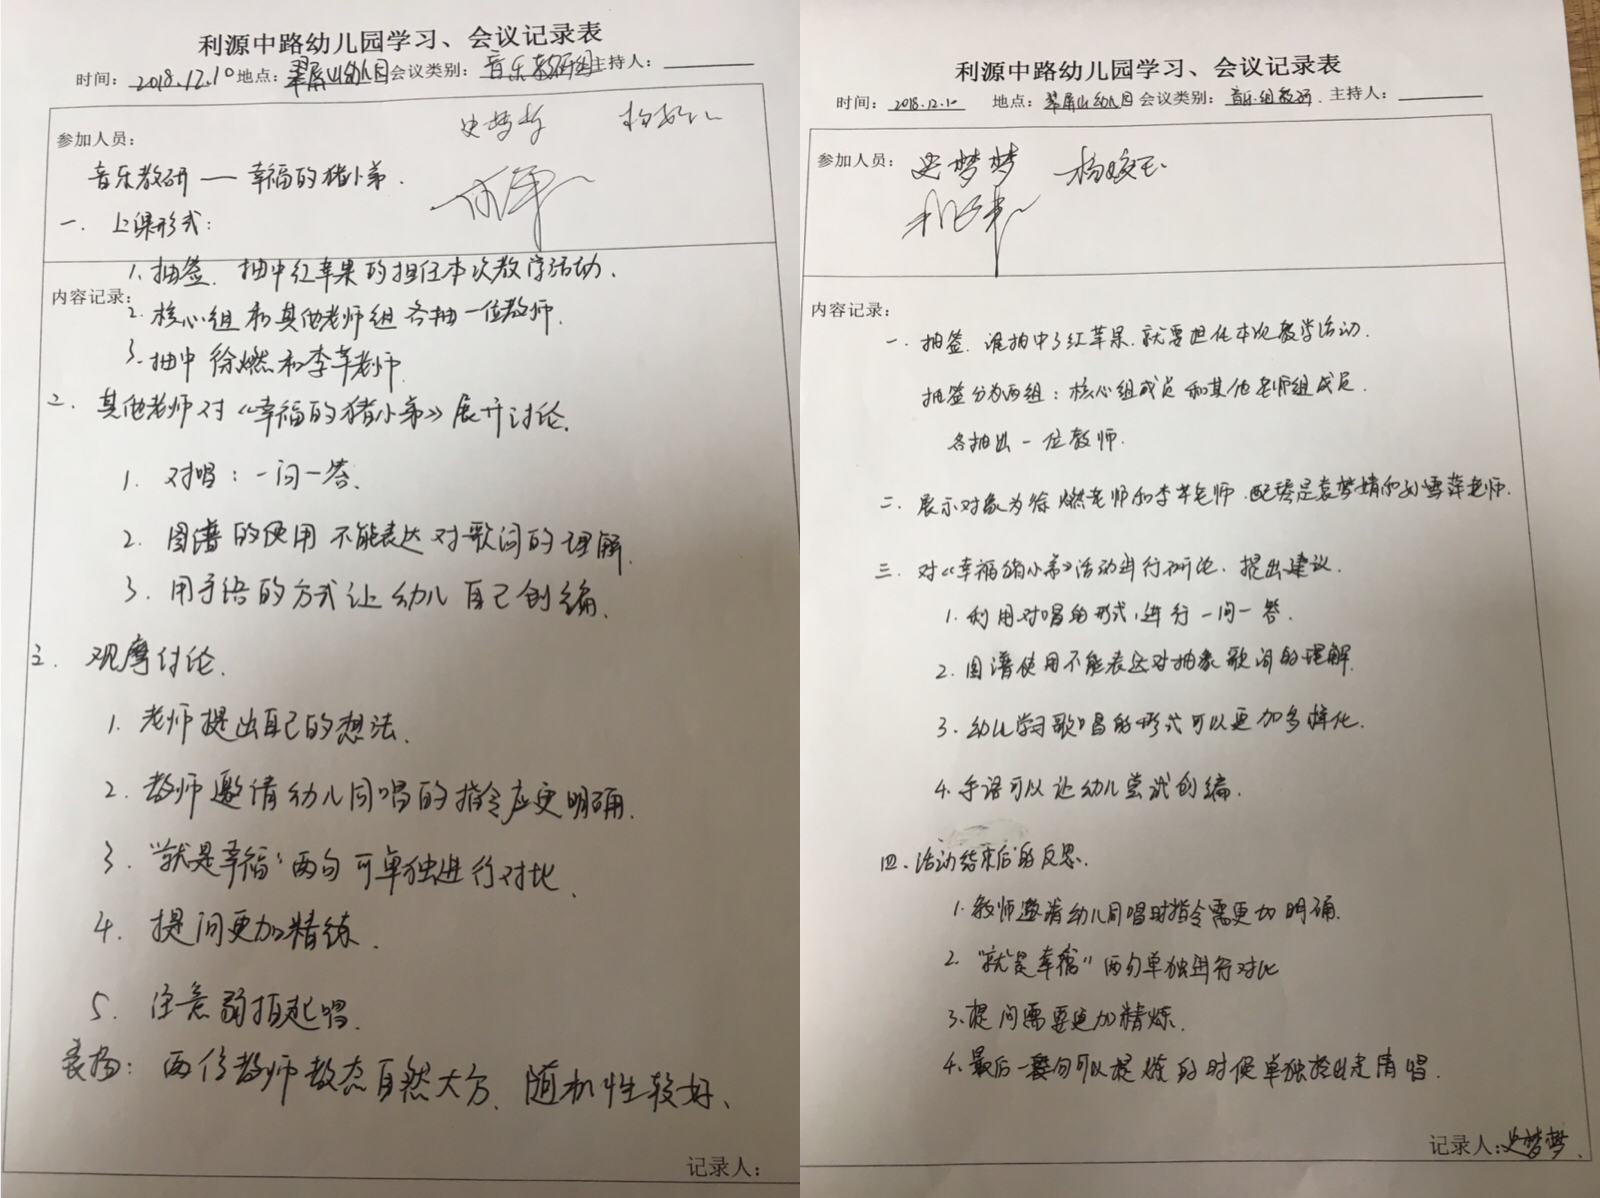 利源中路幼儿园学习、会议记录表
时间：2018.12.10 地点：翠屏山幼儿园 会议类别：音乐教研组 主持人：
参加人员：
史梦梦
音乐教研——幸福的猪小弟.
一. 上课形式：
1. 抽签. 抽中红苹果的担任本次教学活动.
内容记录：
2. 核心组和其他老师组各抽一位教师.
3. 抽中徐燃和李苹老师.
2. 其他老师对《幸福的猪小弟》展开讨论.
1. 对唱：一问一答.
2. 图谱的使用不能表达对歌词的理解.
3. 用手语的方式让幼儿自己创编.
3. 观摩讨论.
1. 老师提出自己的想法.
2. 教师邀请幼儿同唱的指令应更明确.
3. “就是幸福”两句可单独进行对比.
4. 提问更加精练.
5. 注意弱拍起唱.
表扬：两位教师教态自然大方、随机性较好、
记录人：
利源中路幼儿园学习、会议记录表
时间：2018.12.10 地点：翠屏山幼儿园 会议类别：音乐组教研. 主持人：
参加人员：史梦梦
内容记录：
一. 抽签. 谁抽中了红苹果. 就要担任本次教学活动.
抽签分为两组：核心组成员和其他老师组成员.
各抽出一位教师.
二. 展示对象为徐燃老师和李苹老师. 配班是袁梦婧和孙雪萍老师.
三. 对《幸福猪小弟》活动进行研讨. 提出建议.
1. 利用对唱的形式, 进行一问一答.
2. 图谱使用不能表达对抽象歌词的理解.
3. 幼儿学习歌唱的形式可以更加多样化.
4. 手语可以让幼儿尝试创编.
四、活动结束后的反思.
1. 教师邀请幼儿同唱时指令需更加明确.
2. “就是幸福”两句单独进行对比
3. 提问需要更加精炼.
4. 最后一整句可以提炼的时候单独拎出来清唱.
记录人：史梦梦.